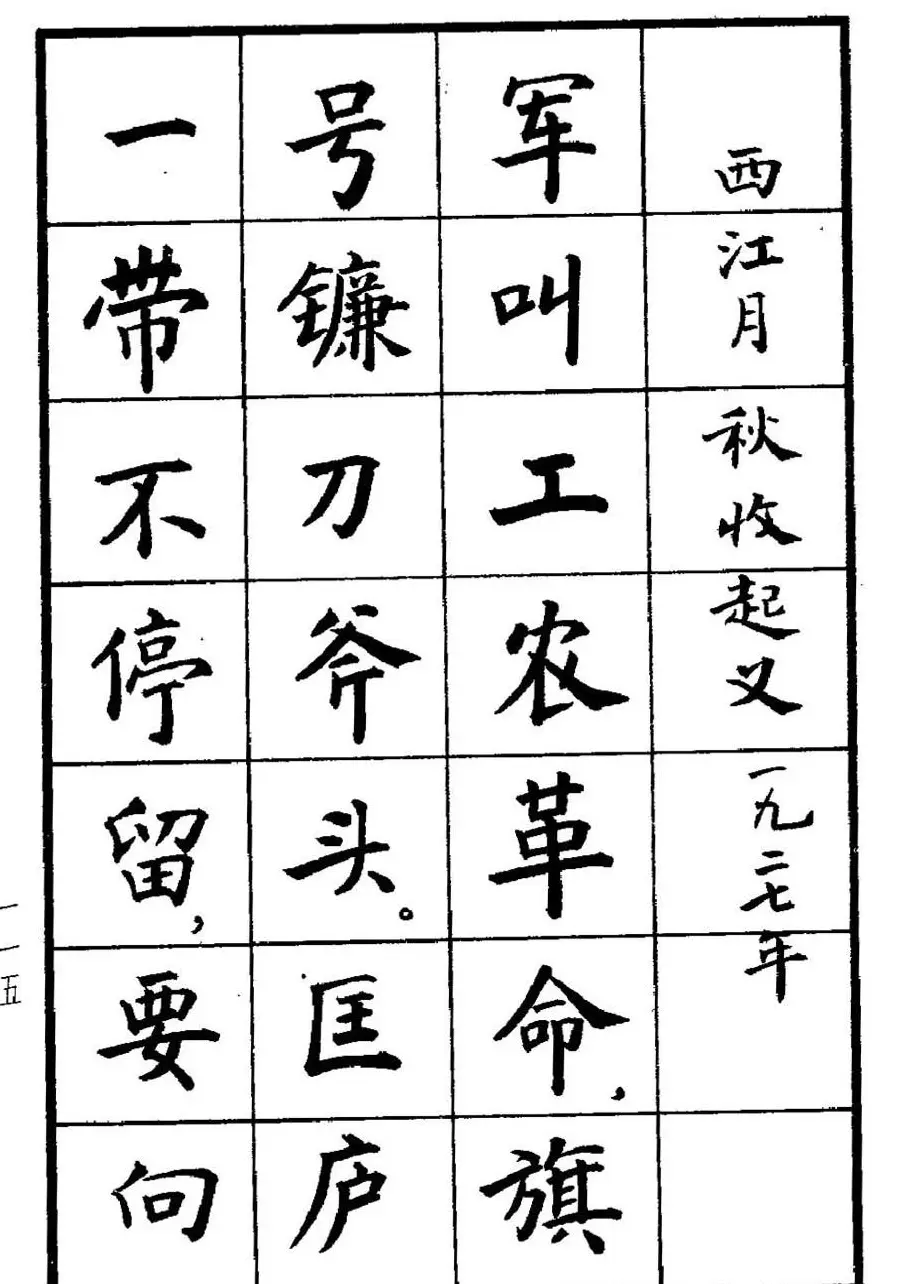 西江月 秋收起义 一九二七年
军叫工农革命，旗
号镰刀斧头。匡庐
一带不停留，要向
一一五